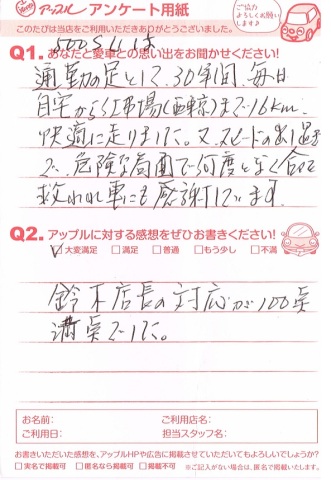 アップル アンケート用紙
ご協力
よろしくお願い
します♪
このたびは当店をご利用いただきありがとうございました。
Q1. あなたと愛車との思い出をお聞かせください!
通勤の足として、30年間、毎日
自宅から工場(西京)まで16km
快適に走りました。又、スピードの出し過ぎ
で、危険な局面で何度となく命を
救われ車にも感謝しています。
Q2. アップルに対する感想をぜひお書きください!
☑大変満足 □満足 □普通 □もう少し □不満
鈴木店長の対応が100点
満点でした。
お名前: ご利用店名:
ご利用日: 担当スタッフ名:
お書きいただいた感想を、アップルHPや広告に掲載させていただいてもよろしいでしょうか?
□実名で掲載可 □匿名なら掲載可 □掲載不可 ※ご記入がない場合は、匿名で掲載いたします。